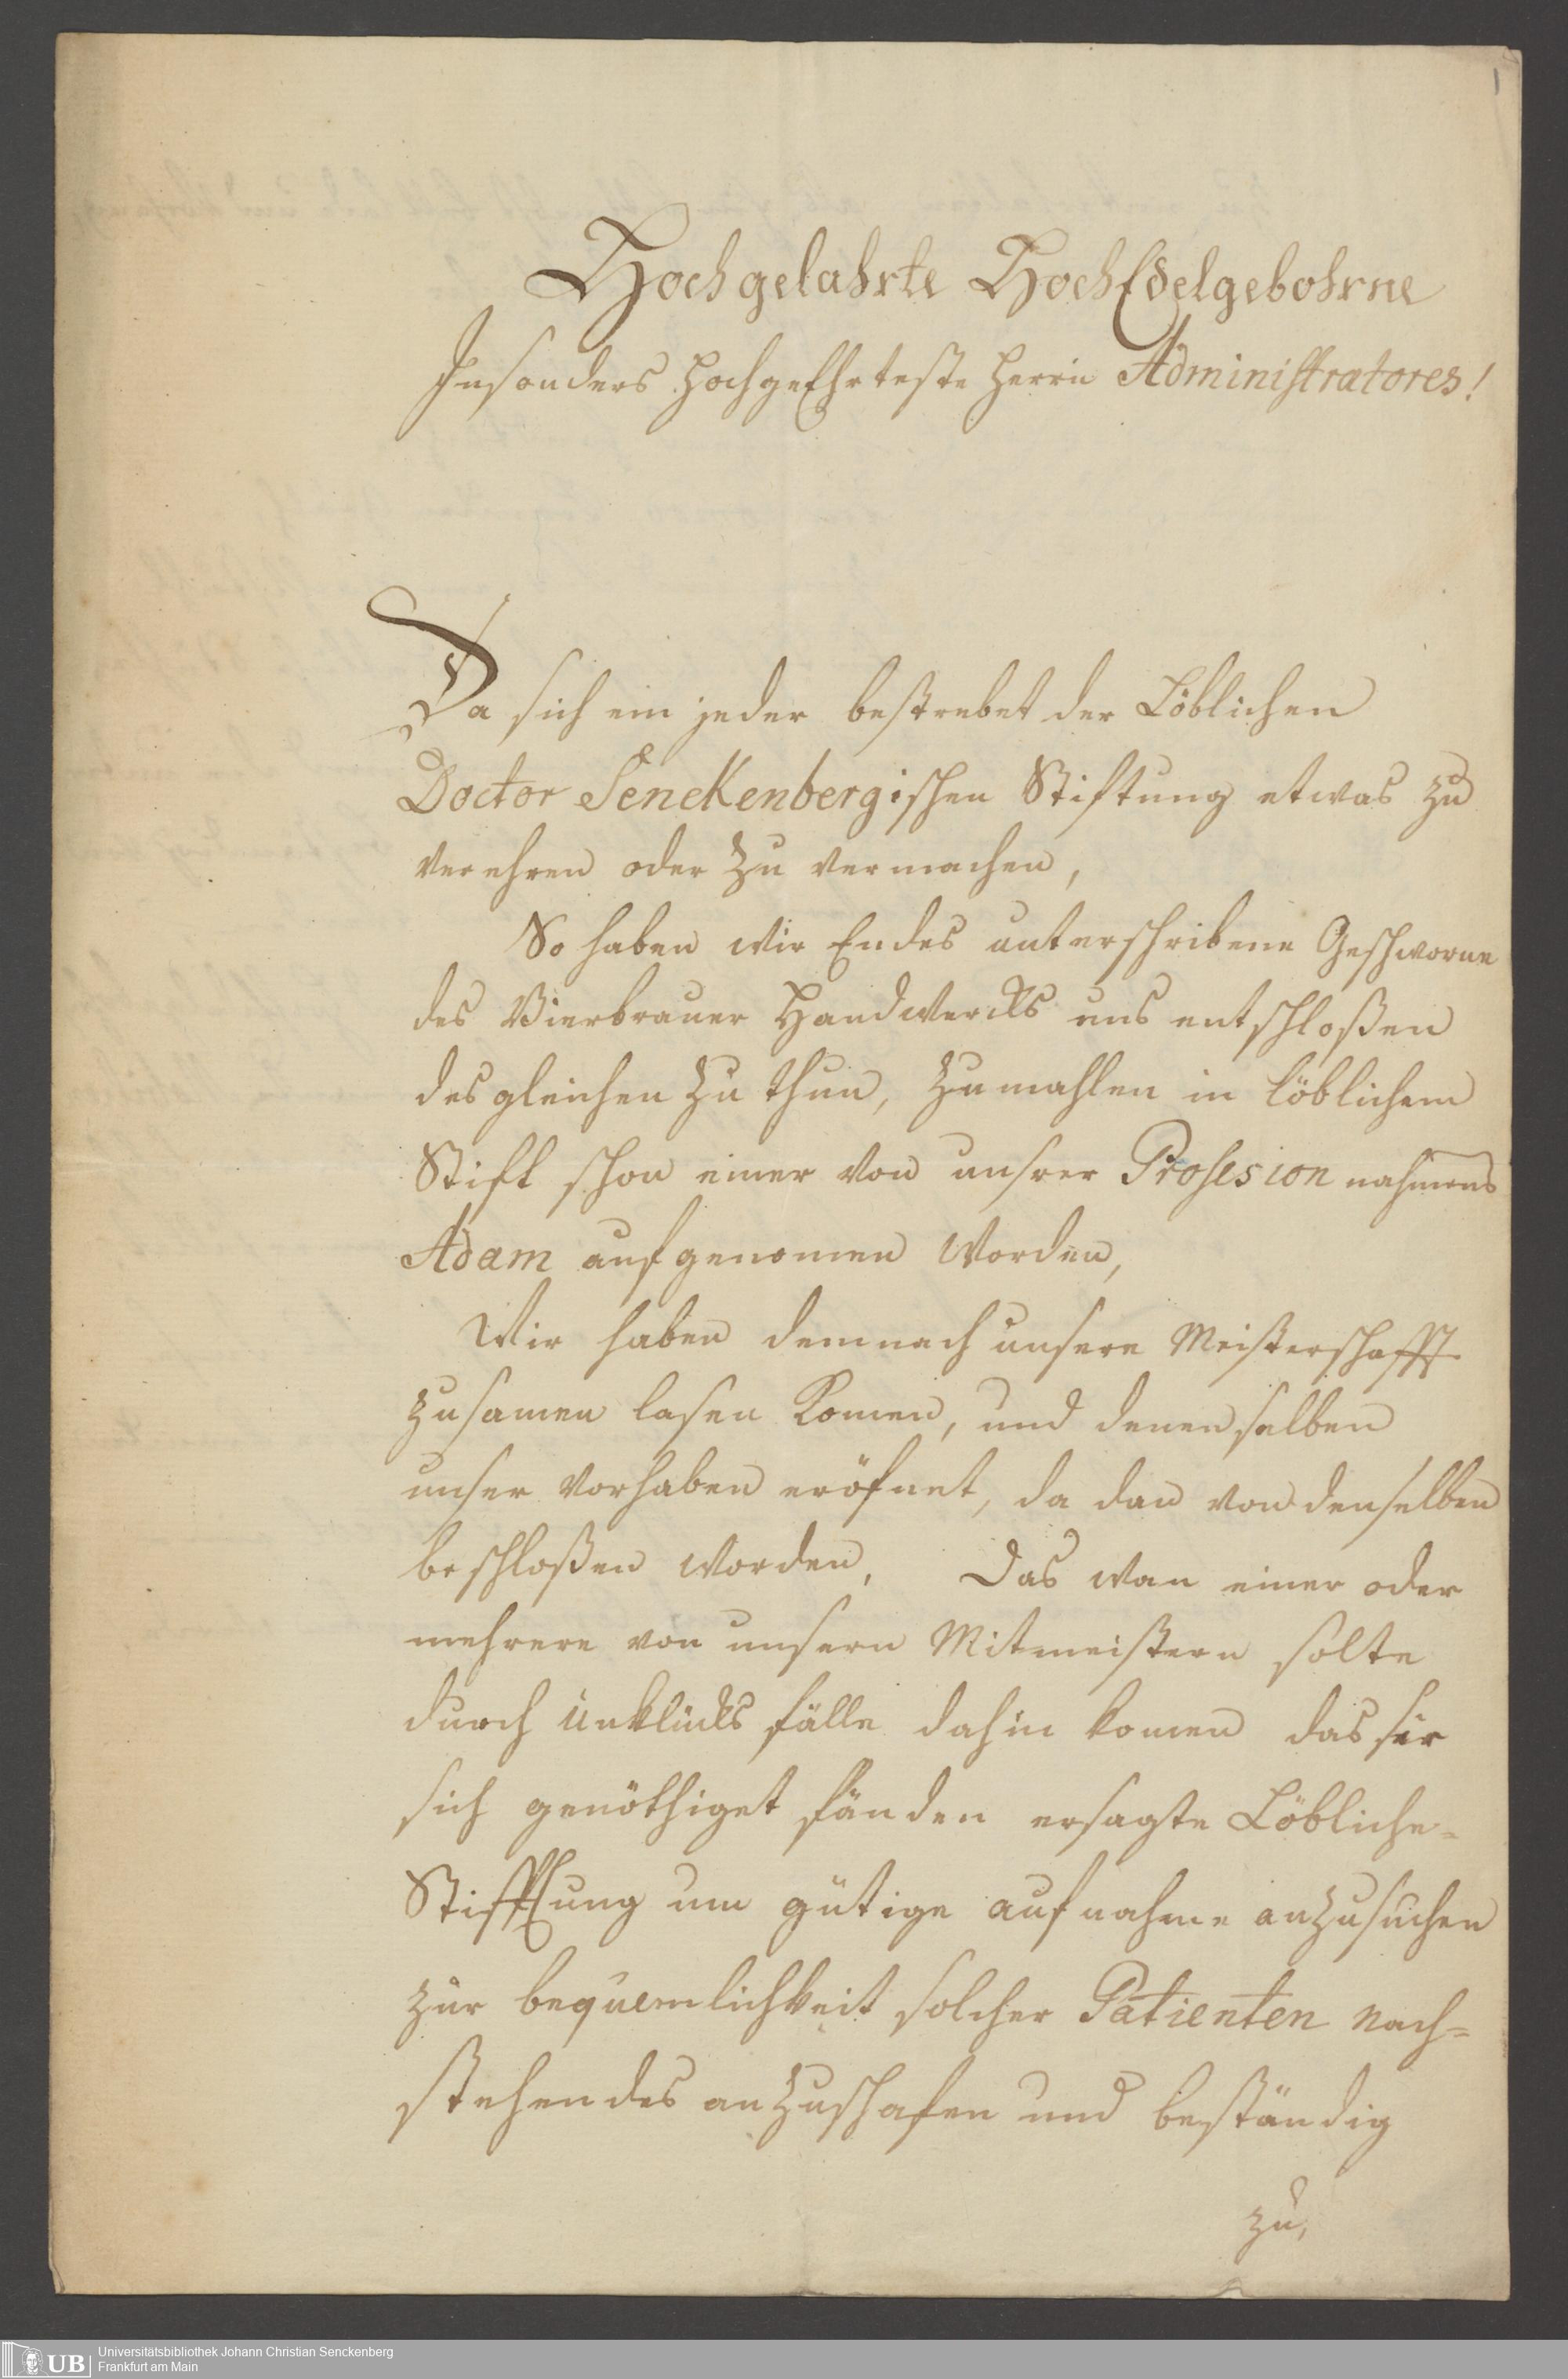 1
Hochgelahrte HochEdelgebohrne
Insonders HochgeEhrteste Herrn Administratores!
Da sich ein jeder bestrebet der Löblichen
Doctor Senekenbergischen Stiftung etwas zu
verehren oder zu vermachen,
So haben wir Endes unterschribene Geschworne
des Bierbrauer Handwercks uns entschloßen
desgleichen zu thun, zumahlen in löblichem
Stift schon einer von unsrer Profesion nahmens
Adam aufgenomen worden,
Wir haben demnach unsere Meisterschafft
zusamen lasen komen, und denenselben
unser vorhaben eröfnet, da dan von denselben
beschloßen worden, Das wan einer oder
mehrere von unsern Mitmeistern solte
durch unklücks fälle dahin komen das sie
sich genöthiget fänden ersagte Löbliche-
Stifftung um gütige aufnahme anzusuchen
zur bequemlichkeit solcher Patienten nach=
stehendes anzuschafen und beständig
zu,
UB
Universitätsbibliothek Johann Christian Senckenberg
Frankfurt am Main